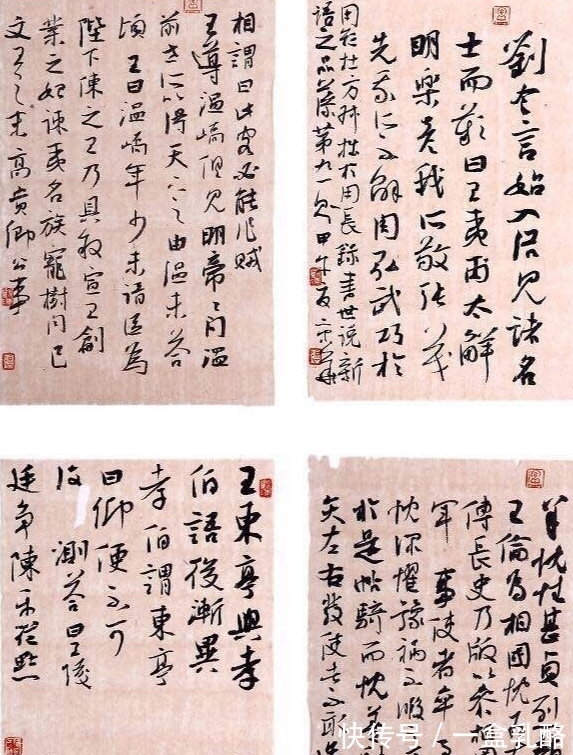 劉令言始入洛見諸名
士而歎曰王夷甫太解
明樂彥我所敬張茂
先我所不解周弘武巧於
用短杜方叔拙於用長錄書世說新
語之品藻第九一則甲午夏
相謂曰此客必能作賊
王導溫嶠俱見明帝々問溫
前世所以得天下之由溫未答
頃王曰溫嶠年少未諳臣為
陛下陳之王乃具敘宣王創
業之始誅夷名族寵樹同己
文王之末高貴鄉公事
羊忱性甚貞烈
王倫為相國忱為
傅長史乃版以參相
軍事使者卒
忱深懼豫禍不暇
於是帖騎而忱善
矢左右發使者不敢進
王東亭與孝
伯語後漸異
孝伯謂東亭
曰卿便不可
復測答曰王陵
廷爭陳平從默
快传号 / 一盒乳酪